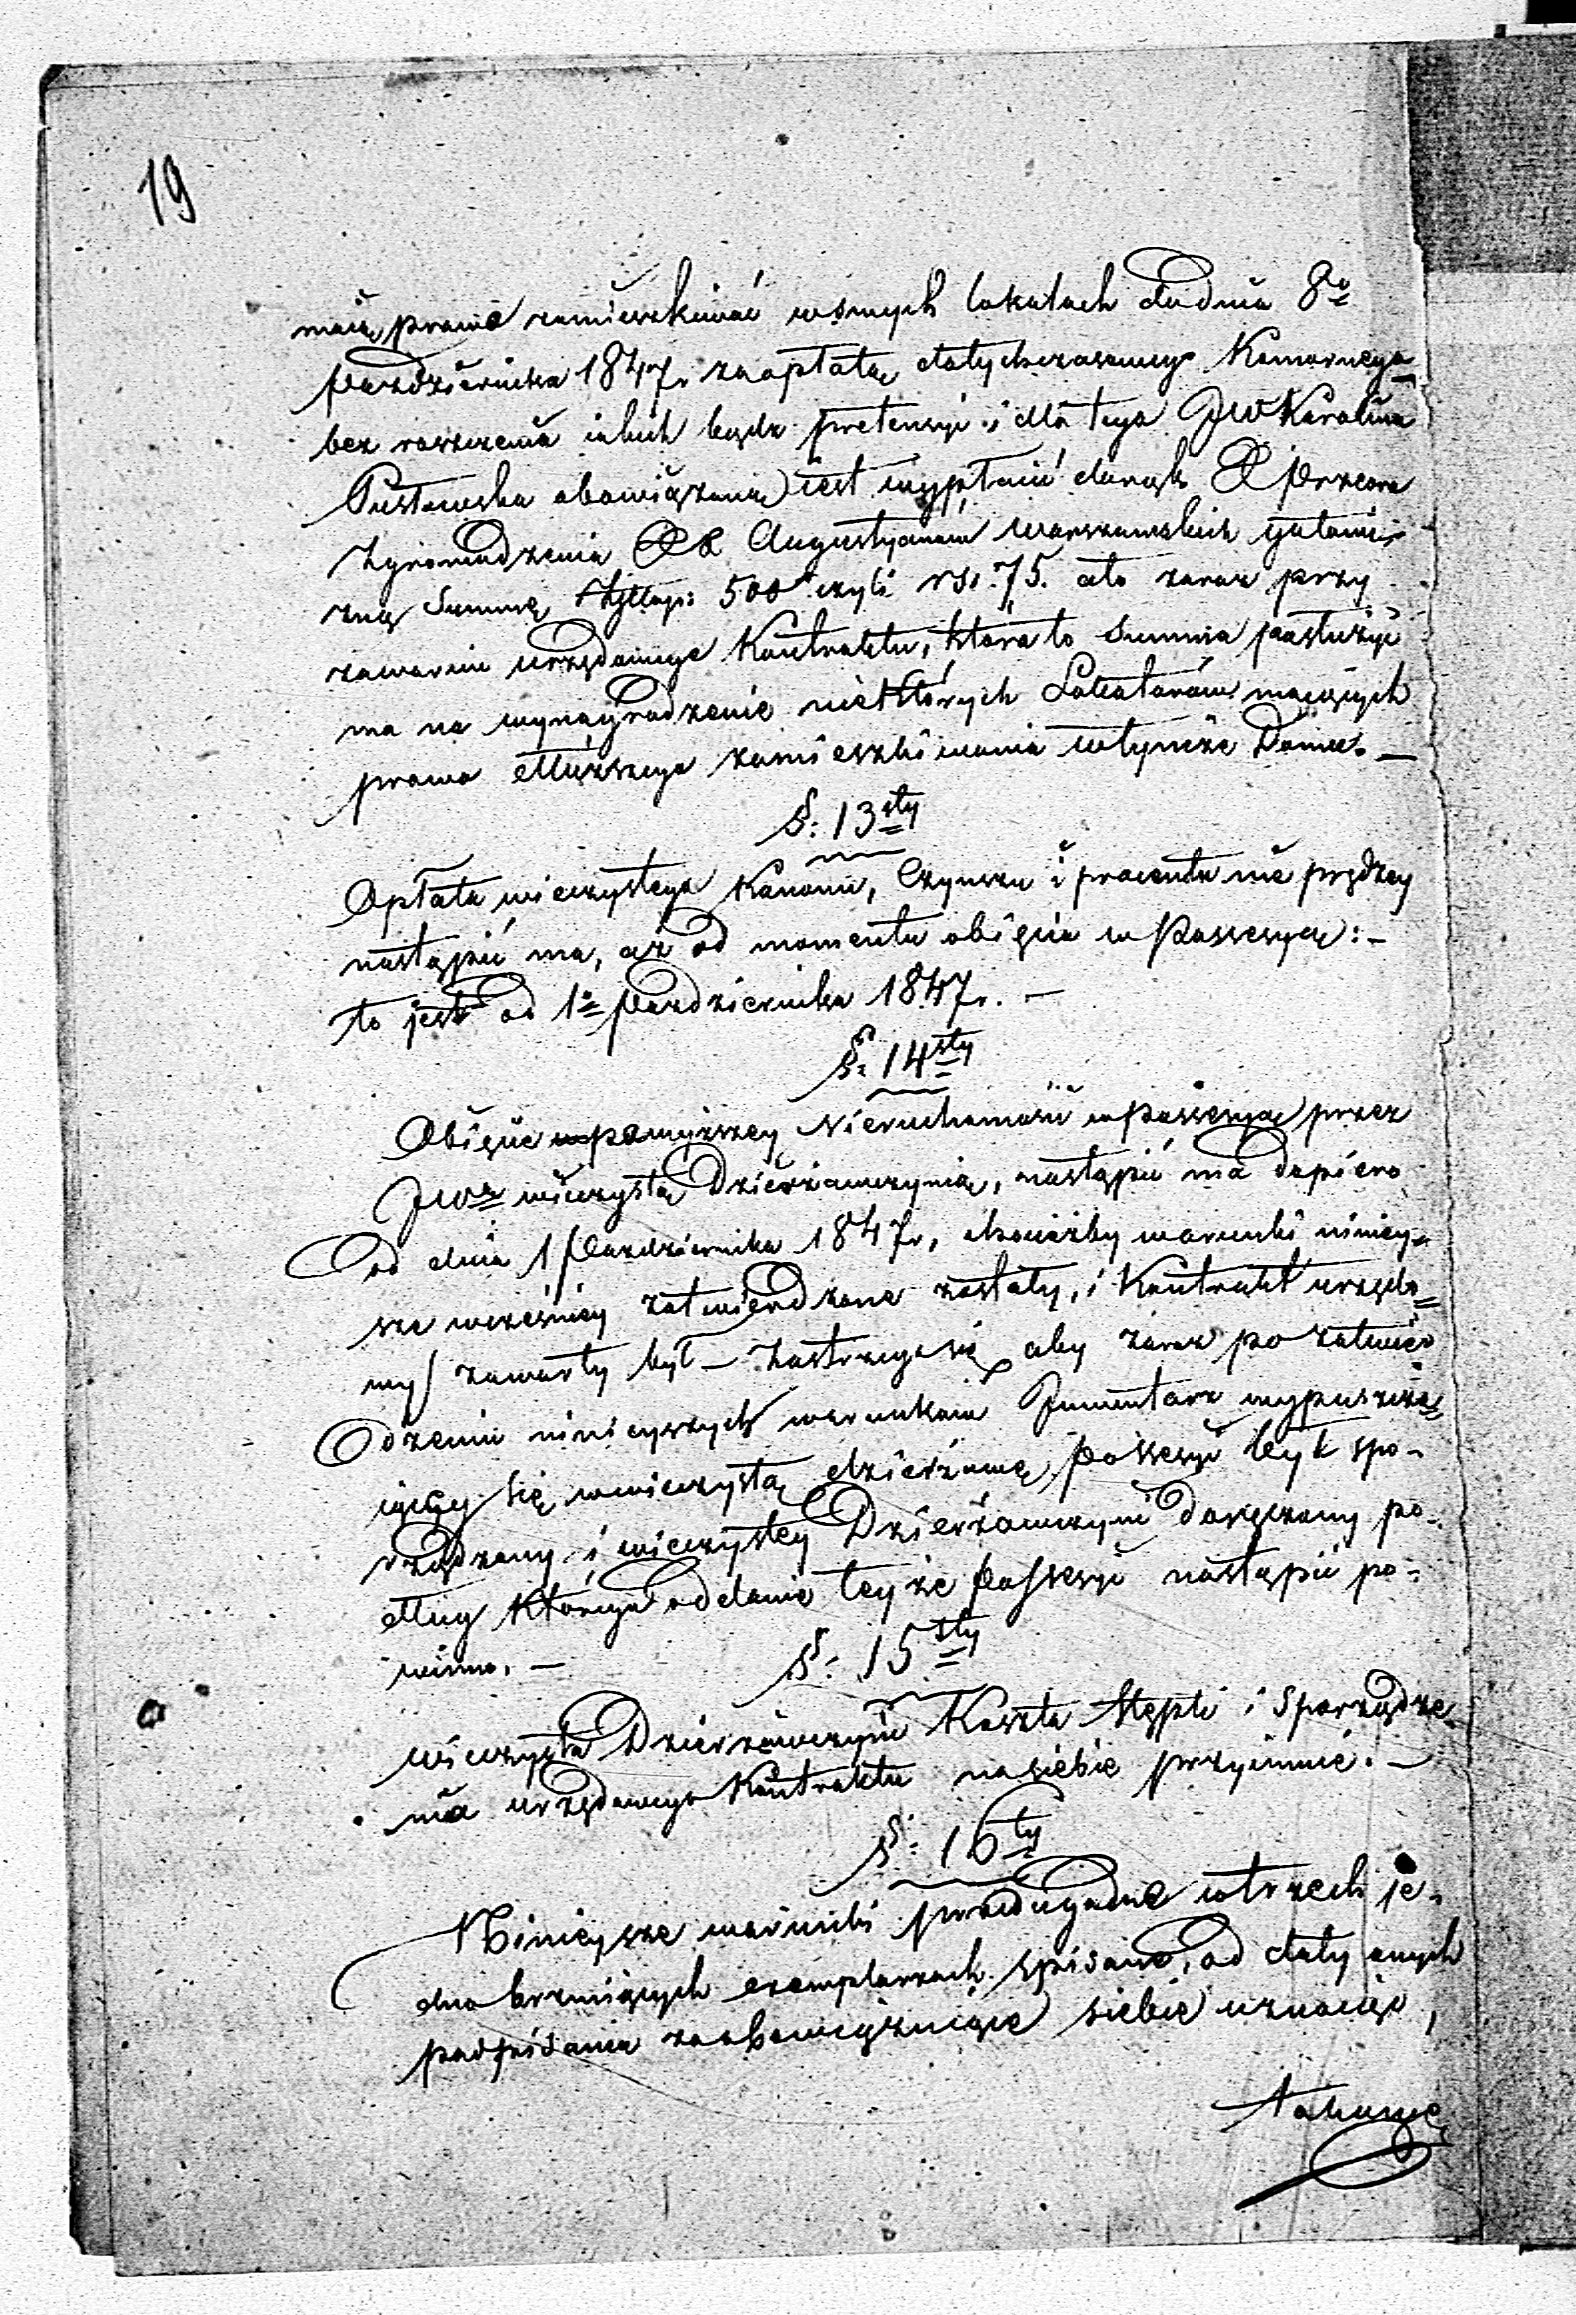 19
maią prawo zamieszkiwać w onych lokalach do dnia 8º
Pazdziernika 1847 r. za opłatą dotychczasowego Komornego
bez roszczenia iakich bądz pretensyi i dla tego JW Karolina
obowiązaną iest wypłacić do rąk X Przeora
Zgromadzenia XX Augustyanów Warszawskich gotowi-
zną Summę Złłp: 500 czyli rs. 75. a to zaraz przy
zawarciu urzędowego Kontraktu, która to Summa posłużyć
ma na wynagrodzenie niektórych Lokatorów maiących
prawo dłuższego zamieszkiwania w tymże Domu. —
§: 13sty
Opłata wieczystego Kanonu, Czynszu i procentu nie prędzey
nastąpić ma, aż od momentu obięcia w Possesyą: —
to jest od 1º Pazdziernika 1847 r. —
§: 14sty
Obięcie powyższey Nieruchomości w Possesyą przez
JWą wieczystą Dzierżawczynią, nastąpić ma dopiero
od dnia 1 Pazdziernika 1847 r, chociażby warunki niniey-
sze wcześniey zatwierdzone zostały, i Kontrakt urzędo=
wy zawarty był — Zastrzega się aby zaraz po zatwier-
dzeniu ninieyszych warunków Inwentarz wypuszcza=
iącey się w wieczystą dzierżawę possesyi był spo-
rządzony i wieczystey Dzierżawczyni doręczony po-
dług którego oddanie teyże possesyi nastąpić po-
winno. —
§: 15sty
Wieczysta Dzierżawczyni Koszta Stępli i Sporządze-
nia urzędowego Kontraktu na siebie przyimuie. —
§: 16ty
Ninieysze warunki przedugodne w trzech je-
dno brzmiących exemplarzach spisane, od daty onych
podpisania za obowiązuiące siebie uznaiąc,